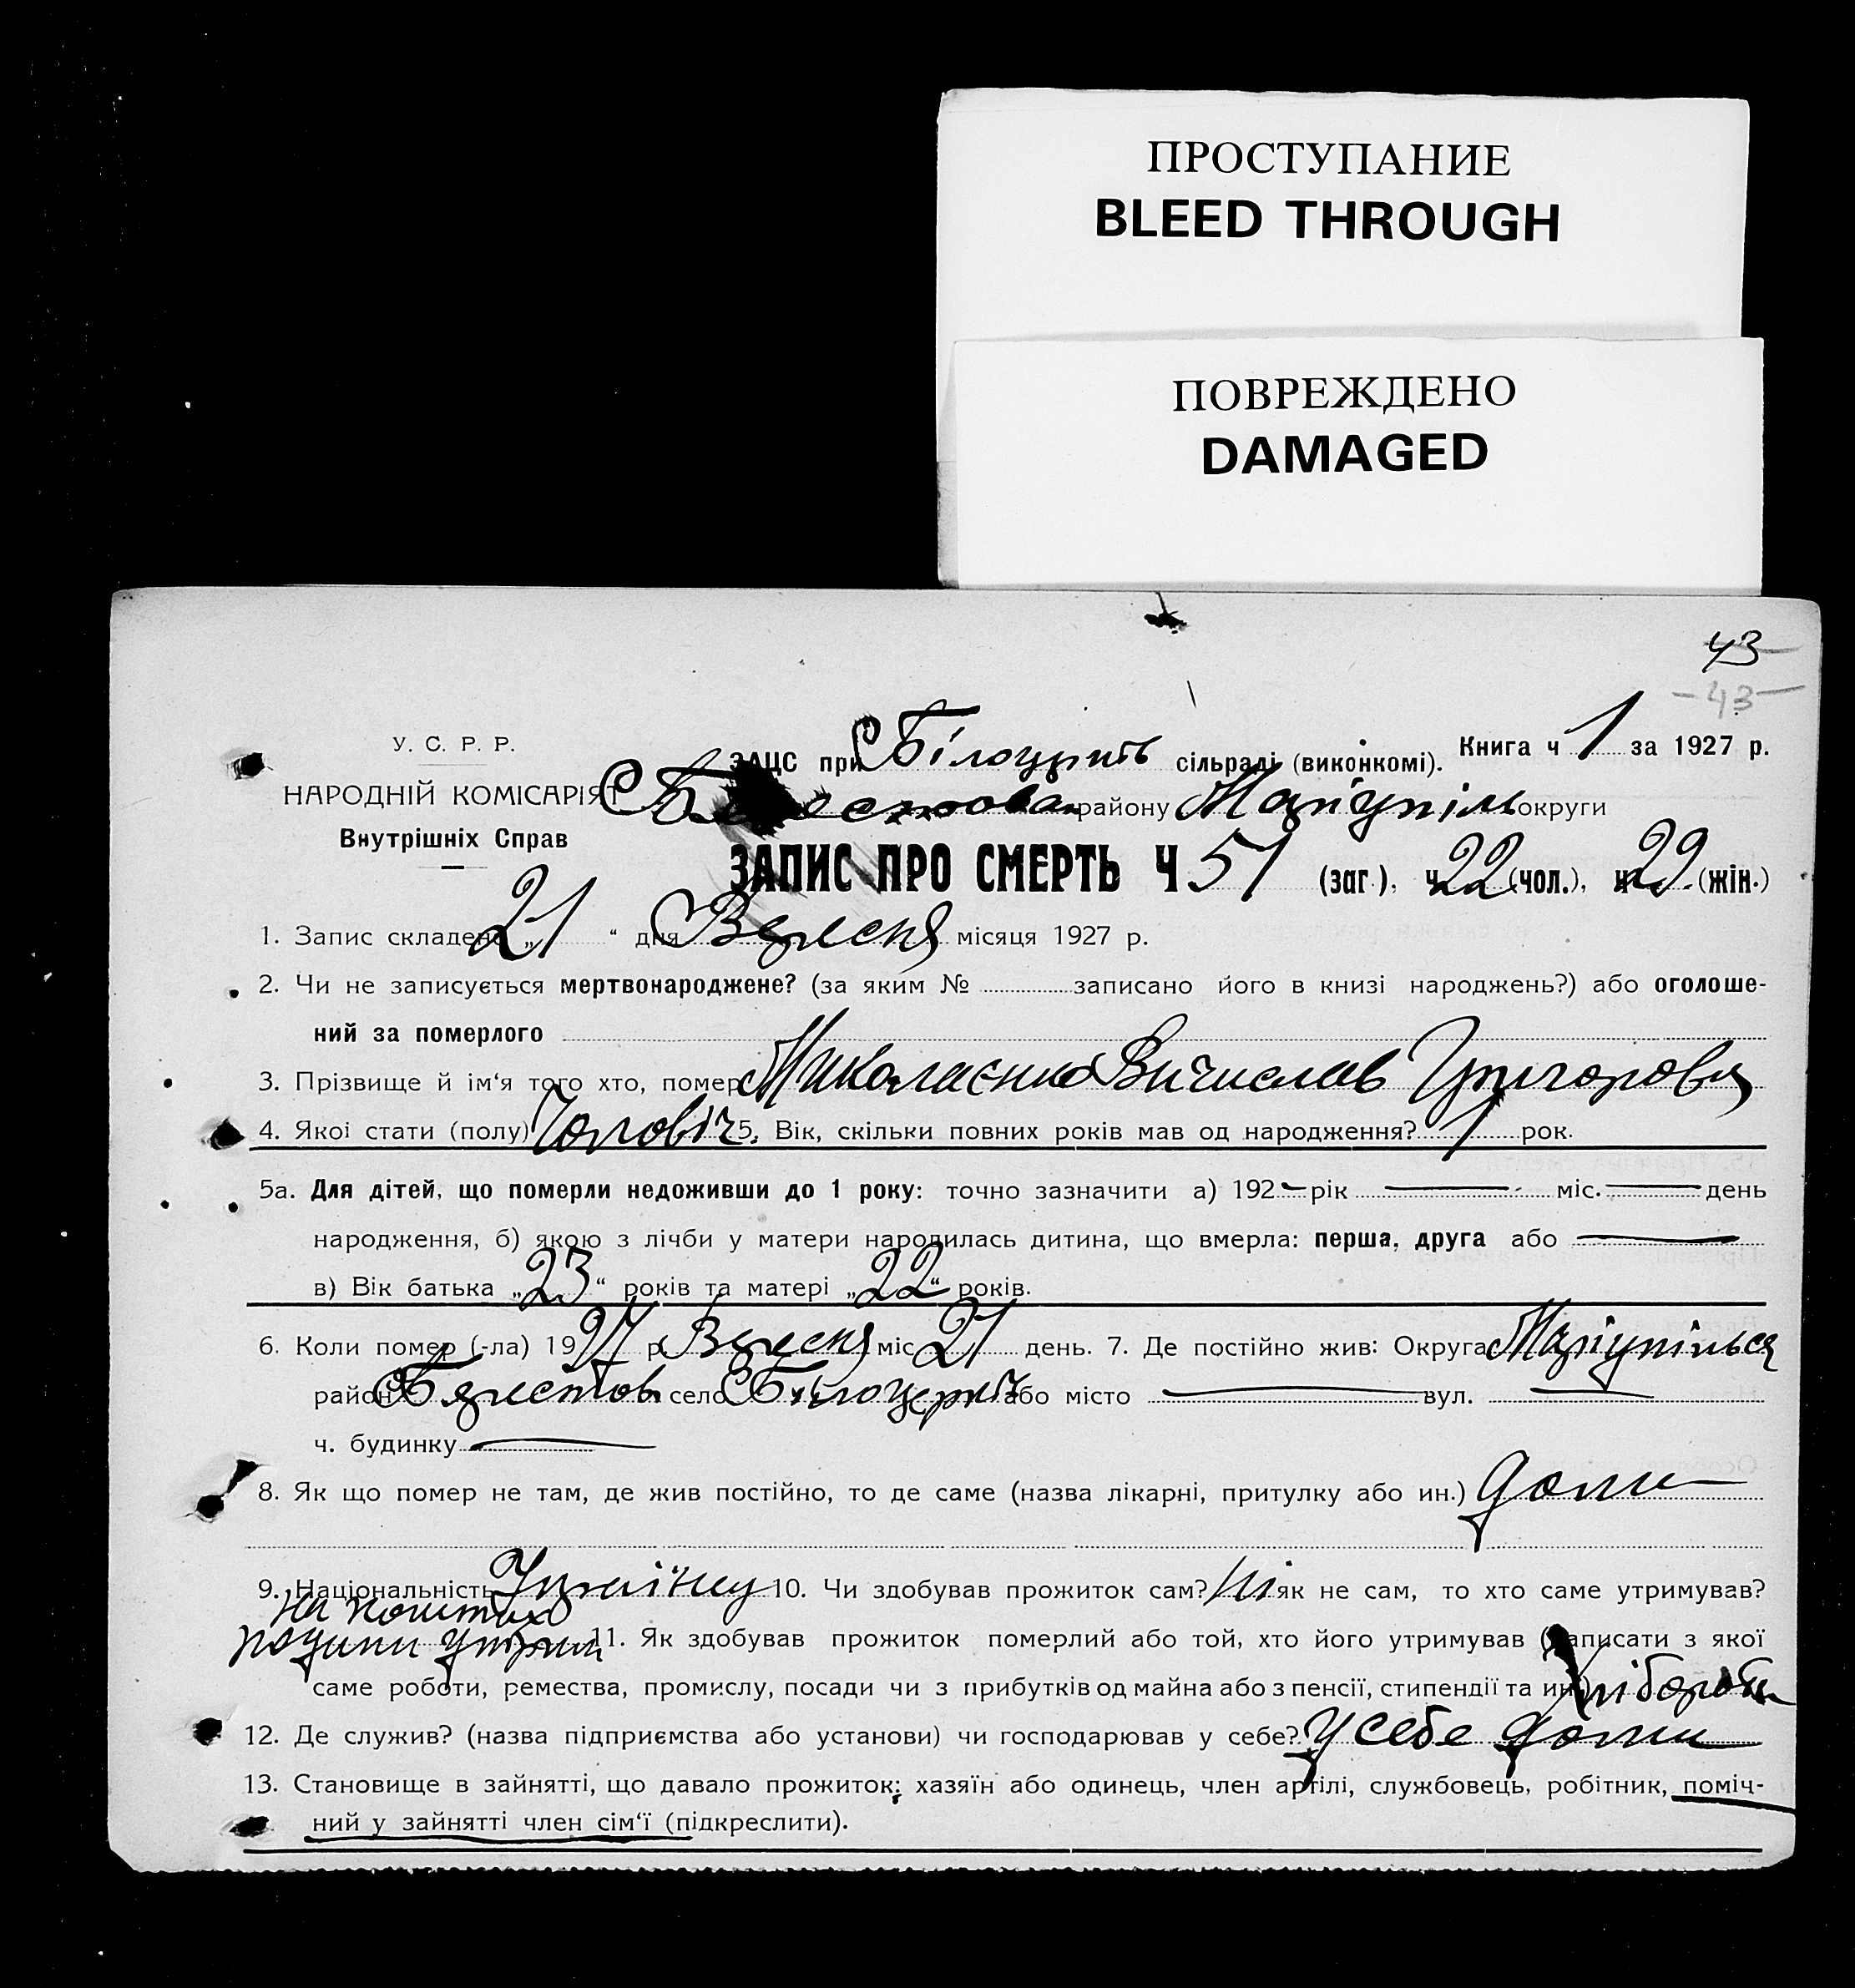 ПРОСТУПАНИЕ
BLEED THROUGH
ПОВРЕЖДЕНО
DAMAGED
43
-43-
У. С. Р. Р.
ЗАЦС при С Білоцерків сільраді (виконкомі). Книга ч 1 за 1927 р.
НАРОДНІЙ КОМІСАРІЯТ
району Маріупіль округи
Внутрішніх Справ
ЗАПИС ПРО СМЕРТЬ Ч 51 (заг.), ч 22 (чол.), ч 29 (жін.)
1. Запис складено „21“ дня Вересня місяця 1927 р.
2. Чи не записується мертвонароджене? (за яким № записано його в книзі народжень?) або оголоше-
ний за померлого
3. Прізвище й ім‘я того хто, помер Миколаєнко Вячислав Григоровя
4. Якоі стати (полу) Чоловіч 5. Вік, скільки повних років мав од народження? 1 рок.
5а. Для дітей, що померли недоживши до 1 року: точно зазначити а) 192 — рік — міс. — день
народження, б) якою з лічби у матери народилась дитина, що вмерла: перша, друга або —
в) Вік батька „23“ років та матері „22“ років.
6. Коли помер (-ла) 1927 р. Вересня міс 21 день. 7. Де постійно жив: Округа Маріупілься
район село або місто — вул. —
ч. будинку —
8. Як що помер не там, де жив постійно, то де саме (назва лікарні, притулку або ин.) Дома
9. Національність Українец 10. Чи здобував прожиток сам? Ні як не сам, то хто саме утримував?
на коштах
родини 11. Як здобував прожиток померлий або той, хто його утримував (написати з якої
саме роботи, ремества, промислу, посади чи з прибутків од майна або з пенсії, стипендії та ин.) Хлібороби
12. Де служив? (назва підприємства або установи) чи господарював у себе? У себе дома
13. Становище в зайнятті, що давало прожиток: хазяїн або одинець, член артілі, службовець, робітник, поміч-
ний у зайнятті член сім‘ї (підкреслити).